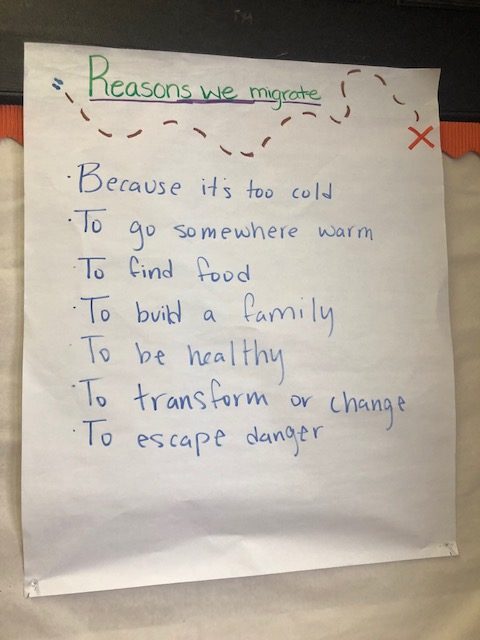 Reasons we migrate
· Because it's too cold
· To go somewhere warm
To find food
· To build a family
To be healthy
· To transform or change
· To escape danger